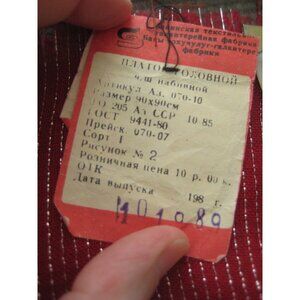 Бакинская текстильно-
галантерейная фабрика
Бакы тохучулуг-галантереја
фабрики
ПЛАТОК ГОЛОВНОЙ
ч/ш набивной
Артикул Аз. 070-10
Размер 90х90см
ТО 205 Аз ССР 10 85
ГОСТ 9441-80
Прейск 070-07
Сорт I
Рисунок № 2
Розничная цена 10 р. 00 к.
ОТК
Дата выпуска 198 г.